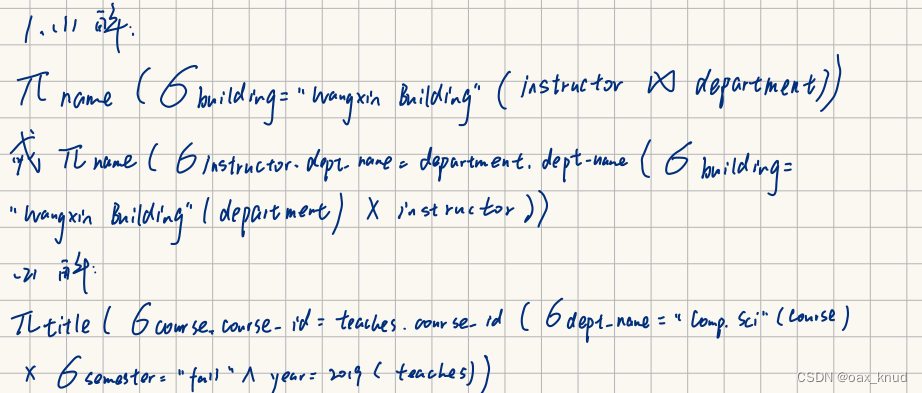 1.(1) 解:
π name ( σ building = "Wangxin Building" ( instructor ⋈ department))
或 π name ( σ instructor.dept_name = department.dept-name ( σ building =
"Wangxin Building" ( department ) × instructor ))
(2) 解:
π title ( σ course.course_id = teaches.course_id ( σ dept_name = "Comp. Sci" (course)
× σ semester = "fall" ∧ year = 2019 ( teaches))
CSDN @oax_knud